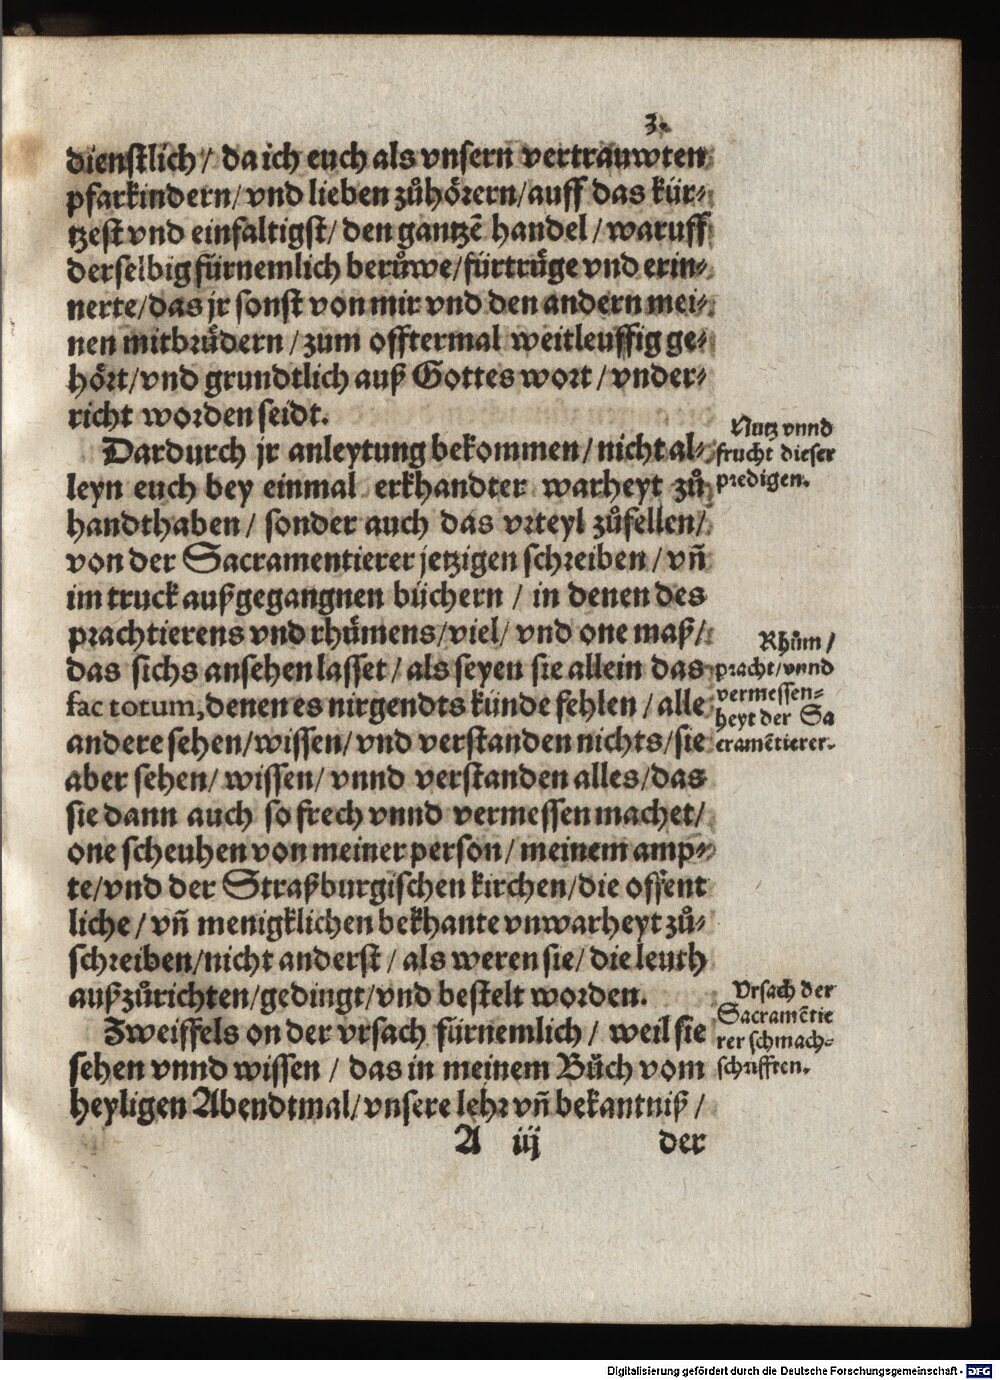 3.
dienstlich / da ich euch als vnsern vertrauwten
pfarkindern / vnd lieben zůhörern / auff das kür-
tzest vnd einfaltigst / den gantzẽ handel / waruff
derselbig fürnemlich berůwe / fürtrüge vnd erin-
nerte / das jr sonst von mir vnd den andern mei-
nen mitbrüdern / zum offtermal weitleuffig ge-
hört / vnd grundtlich auß Gottes wort / vnder-
richt worden seidt.
Dardurch jr anleytung bekommen / nicht al-
leyn euch bey einmal erkhandter warheyt zů
handthaben / sonder auch das vrteyl zůfellen /
von der Sacramentierer jetzigen schreiben / vñ
im truck außgegangnen büchern / in denen des
prachtierens vnd rhümens / viel / vnd one maß /
das sichs ansehen lasset / als seyen sie allein das
fac totum, denen es nirgendts künde fehlen / alle
andere sehen / wissen / vnd verstanden nichts / sie
aber sehen / wissen / vnnd verstanden alles / das
sie dann auch so frech vnnd vermessen machet /
one scheuhen von meiner person / meinem amp-
te / vnd der Straßburgischen kirchen / die offent
liche / vñ menigklichen bekhante vnwarheyt zů-
schreiben / nicht anderst / als weren sie / die leuth
außzůrichten / gedingt / vnd bestelt worden.
Zweiffels on der vrsach fürnemlich / weil sie
sehen vnnd wissen / das in meinem Bůch vom
heyligen Abendtmal / vnsere lehr vñ bekantniß /
A iij der
Nutz vnnd
frucht dieser
predigen.
Rhům /
pracht / vnnd
vermessen-
heyt der Sa
cramẽtierer.
Vrsach der
Sacramẽtie
rer schmach-
schrifften.
Digitalisierung gefördert durch die Deutsche Forschungsgemeinschaft - DFG